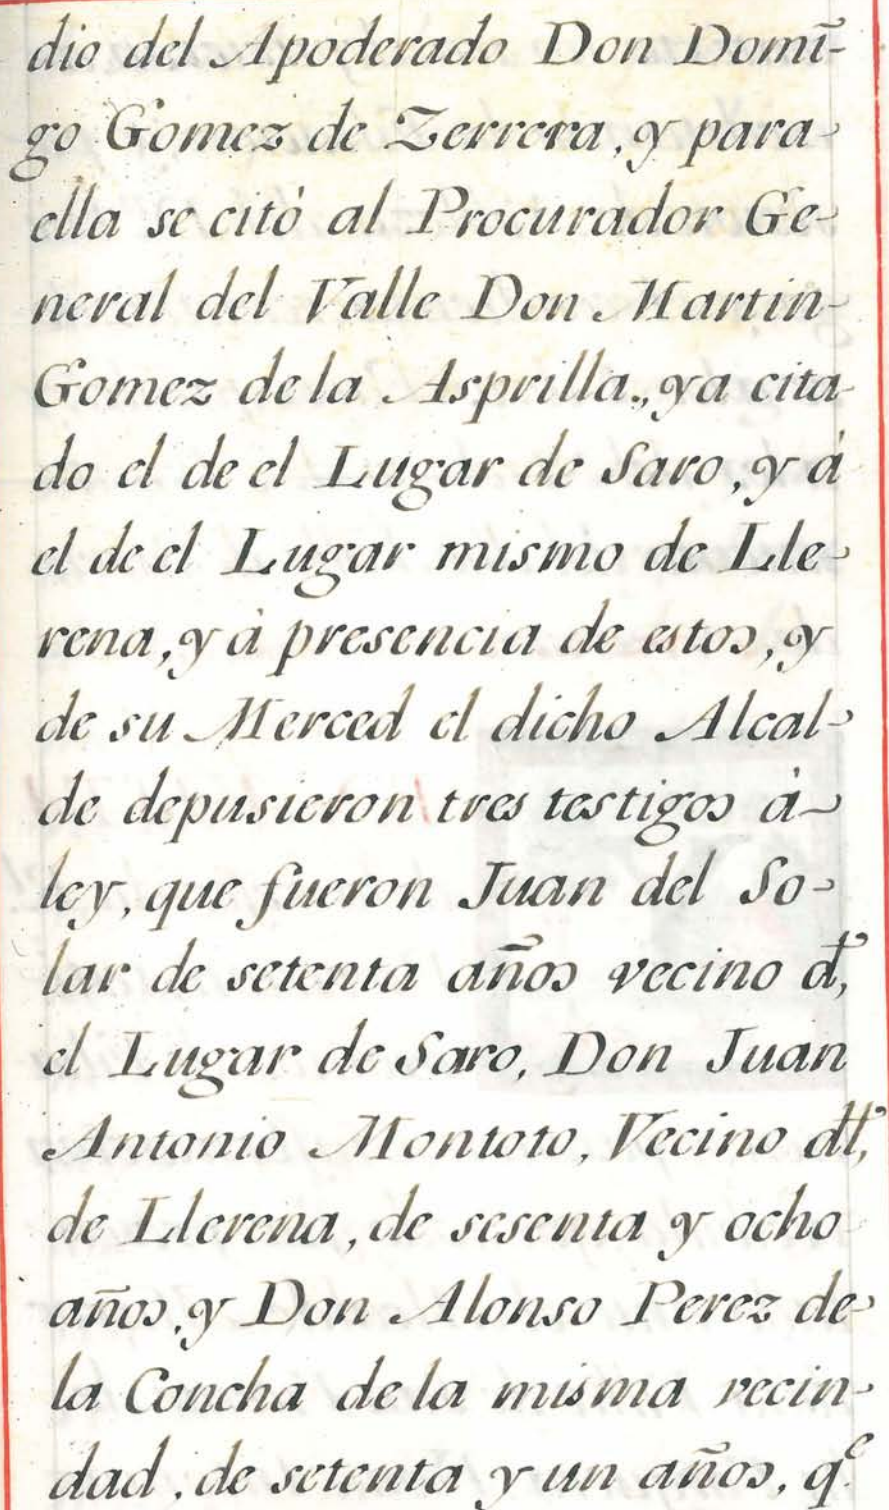 dio del Apoderado Don Domī-
go Gomez de Zerrera, y para-
ella se citò al Procurador Ge-
neral del Valle Don Martin-
Gomez de la Asprilla., ya cita-
do el de el Lugar de Saro, y à
el de el Lugar mismo de Lle-
rena, y à presencia de estos, y
de su Merced el dicho Alcal-
de depusieron tres testigos à-
ley, que fueron Juan del So-
lar de setenta años vecino đ,
el Lugar de Saro, Don Juan
Antonio Montoto, Vecino đł,
de Llerena, de sesenta y ocho
años, y Don Alonso Perez de-
la Concha de la misma vecin-
dad, de setenta y un años, qᵉ.